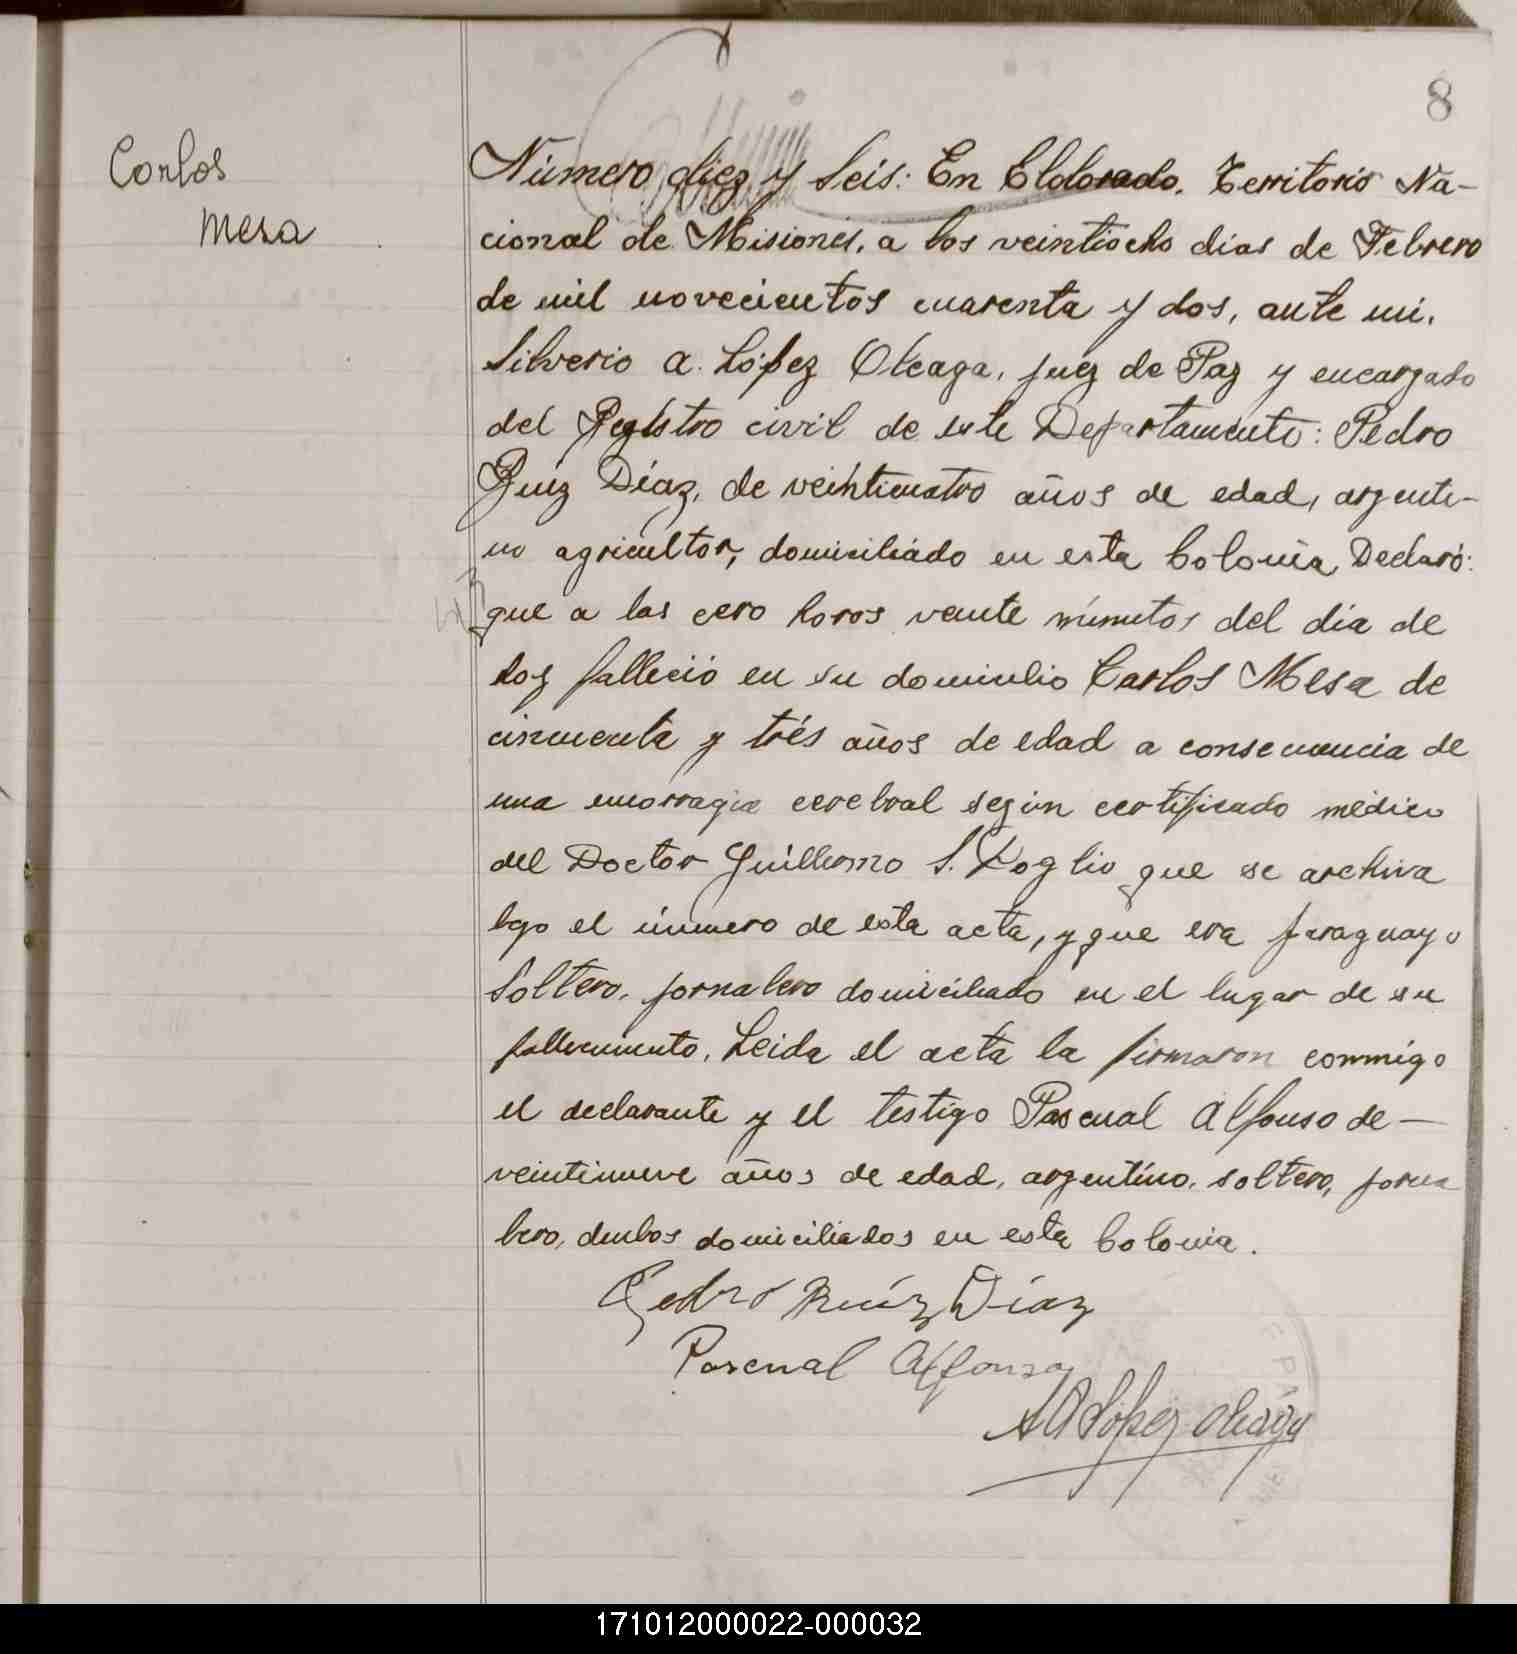 8
Carlos
Mesa
Número diez y Seis: En Eldorado. Territorio Na-
cional de Misiones, a los veintiocho dias de Febrero
de mil novecientos cuarenta y dos, ante mi.
Silverio A. López Oleaga, juez de Paz y encargado
del Registro civil de este Departamento: Pedro
Ruiz Díaz, de veinticuatro años de edad, argenti-
no agricultor, domiciliado en esta Colonia, Declaró:
que a las cero horas veinte minutos del dia de
hoy falleció en su domicilio Carlos Mesa de
cincuenta y trés años de edad a consecuencia de
una emorragia cerebral según certificado médico
del Doctor Guillermo S. que se archiva
bajo el número de esta acta, y que era paraguayo
Soltero, jornalero domiciliado en el lugar de su
fallecimiento. Leida el acta la firmaron conmigo
el declarante y el testigo Pascual Alfonso de —
veintinueve años de edad, argentino, soltero, jorna
lero, ambos domiciliados en esta Colonia.
Pedro Ruíz Díaz
Pascual Alfonso
S A López Oleaga
171012000022-000032